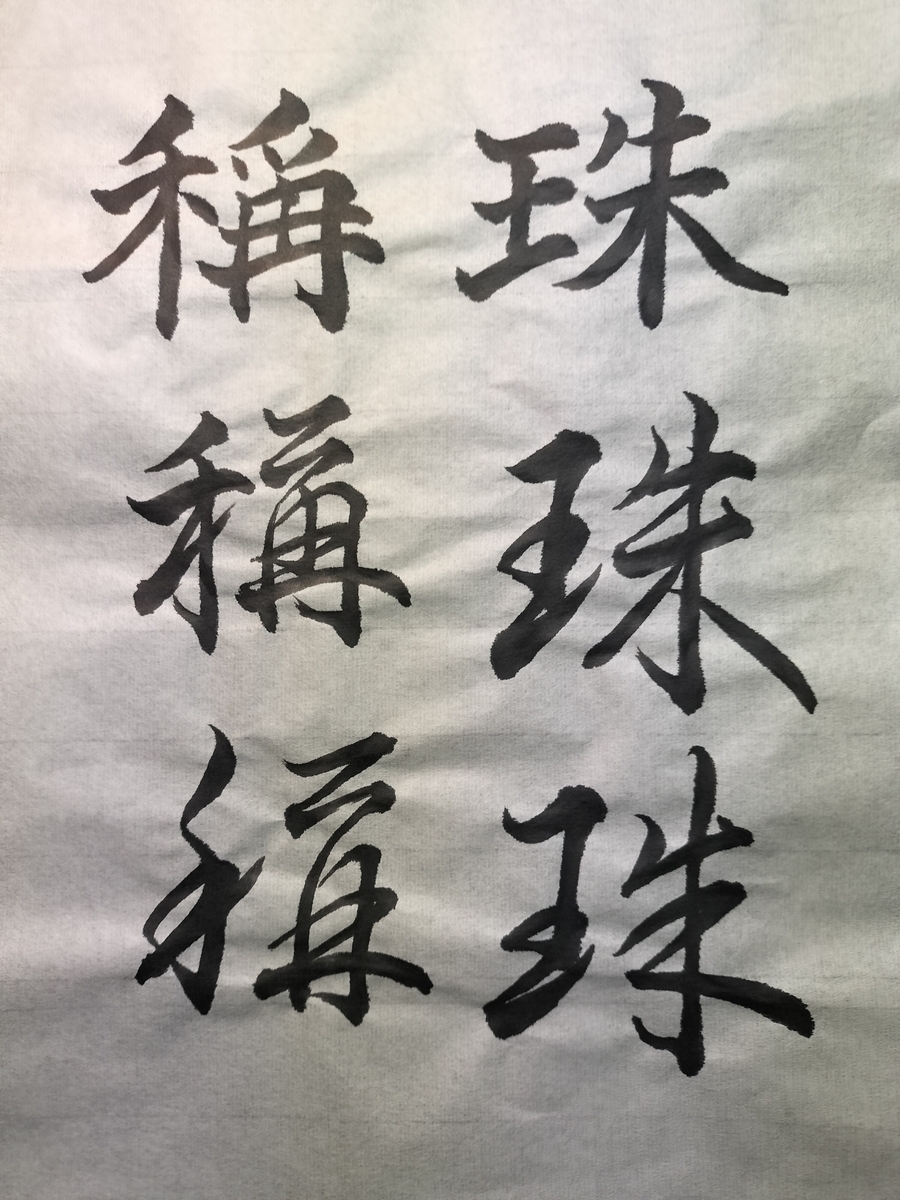 珠珠珠
稱稱稱